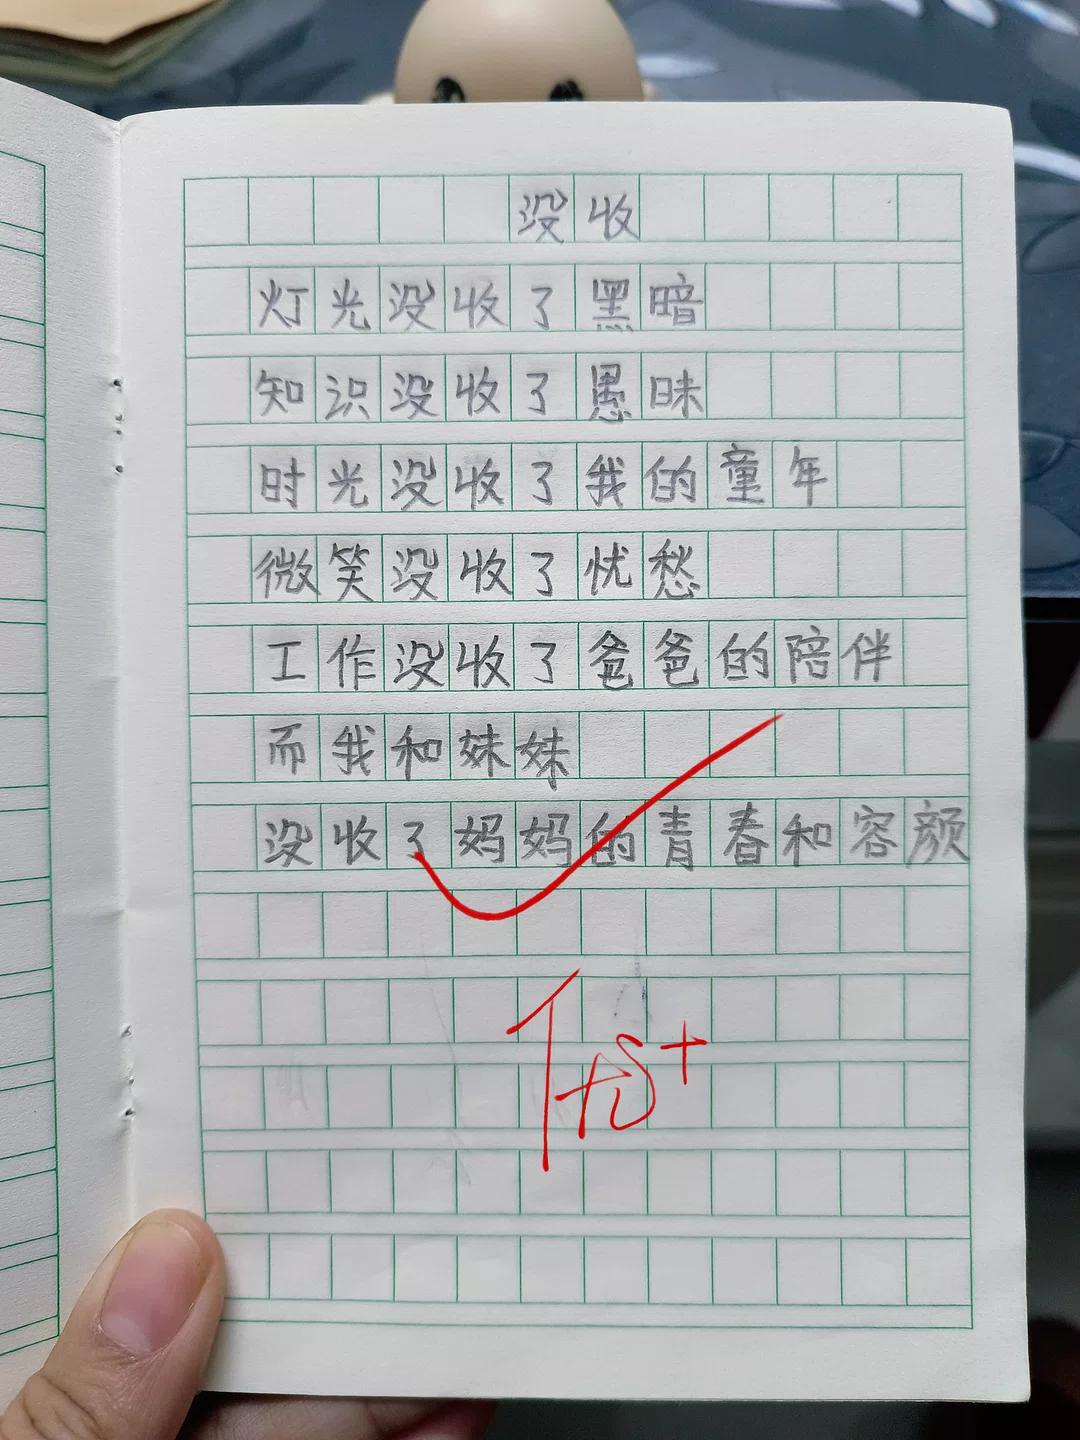 没收
灯光没收了黑暗
知识没收了愚昧
时光没收了我的童年
微笑没收了忧愁
工作没收了爸爸的陪伴
而我和妹妹
没收了妈妈的青春和容颜
优+